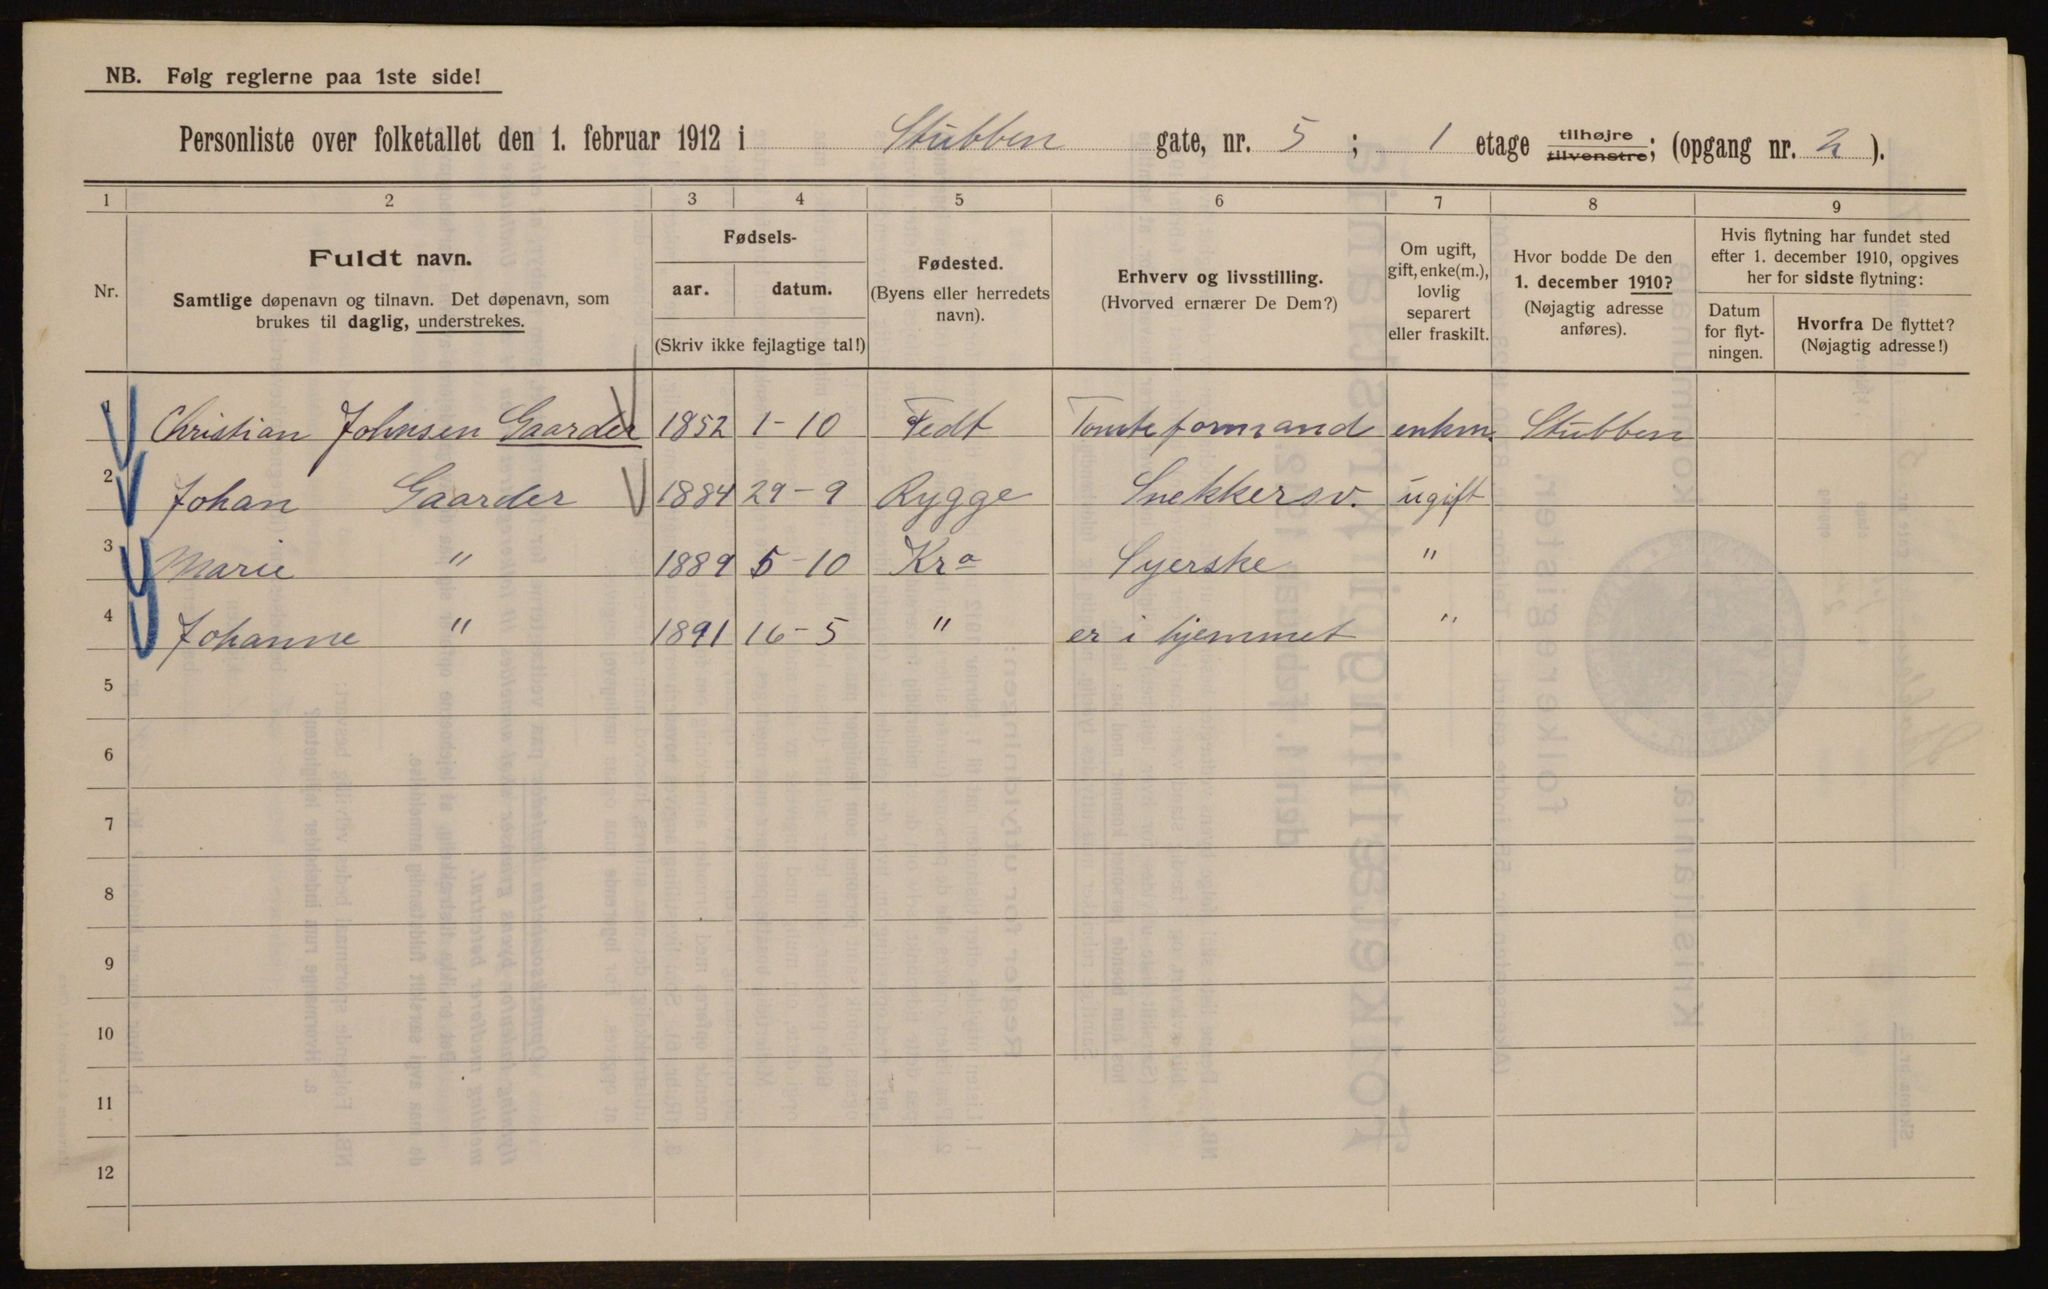 NB. Følg reglerne paa 1ste side!
Personliste over folketallet den 1. februar 1912 i Stubben gate, nr. 5 ; 1 etage tilhøjre tilvenstre; (opgang nr. 2 ).
1 2 3 4 5 6 7 8 9
Nr.
Fuldt navn.
Samtlige døpenavn og tilnavn. Det døpenavn, som
brukes til daglig, understrekes.
Fødsels-
aar. datum.
(Skriv ikke fejlagtige tal!)
Fødested.
(Byens eller herredets
navn).
Erhverv og livsstilling.
(Hvorved ernærer De Dem?)
Om ugift,
gift, enke(m.),
lovlig
separert
eller fraskilt.
Hvor bodde De den
1. december 1910?
(Nøjagtig adresse
anføres).
Hvis flytning har fundet sted
efter 1. december 1910, opgives
her for sidste flytning:
Datum
for flyt-
ningen.
Hvorfra De flyttet?
(Nøjagtig adresse!)
1 Christian Johnsen Gaarder 1852 1-10 Tomteformand enkm. Stubben
2 Johan Gaarder 1884 29-9 Rygge Snekkersv. ugift
3 Marie " 1889 5-10 Kra Syerske "
4 Johanne " 1891 16-5 " er i hjemmet "
5
6
7
8
9
10
11
12